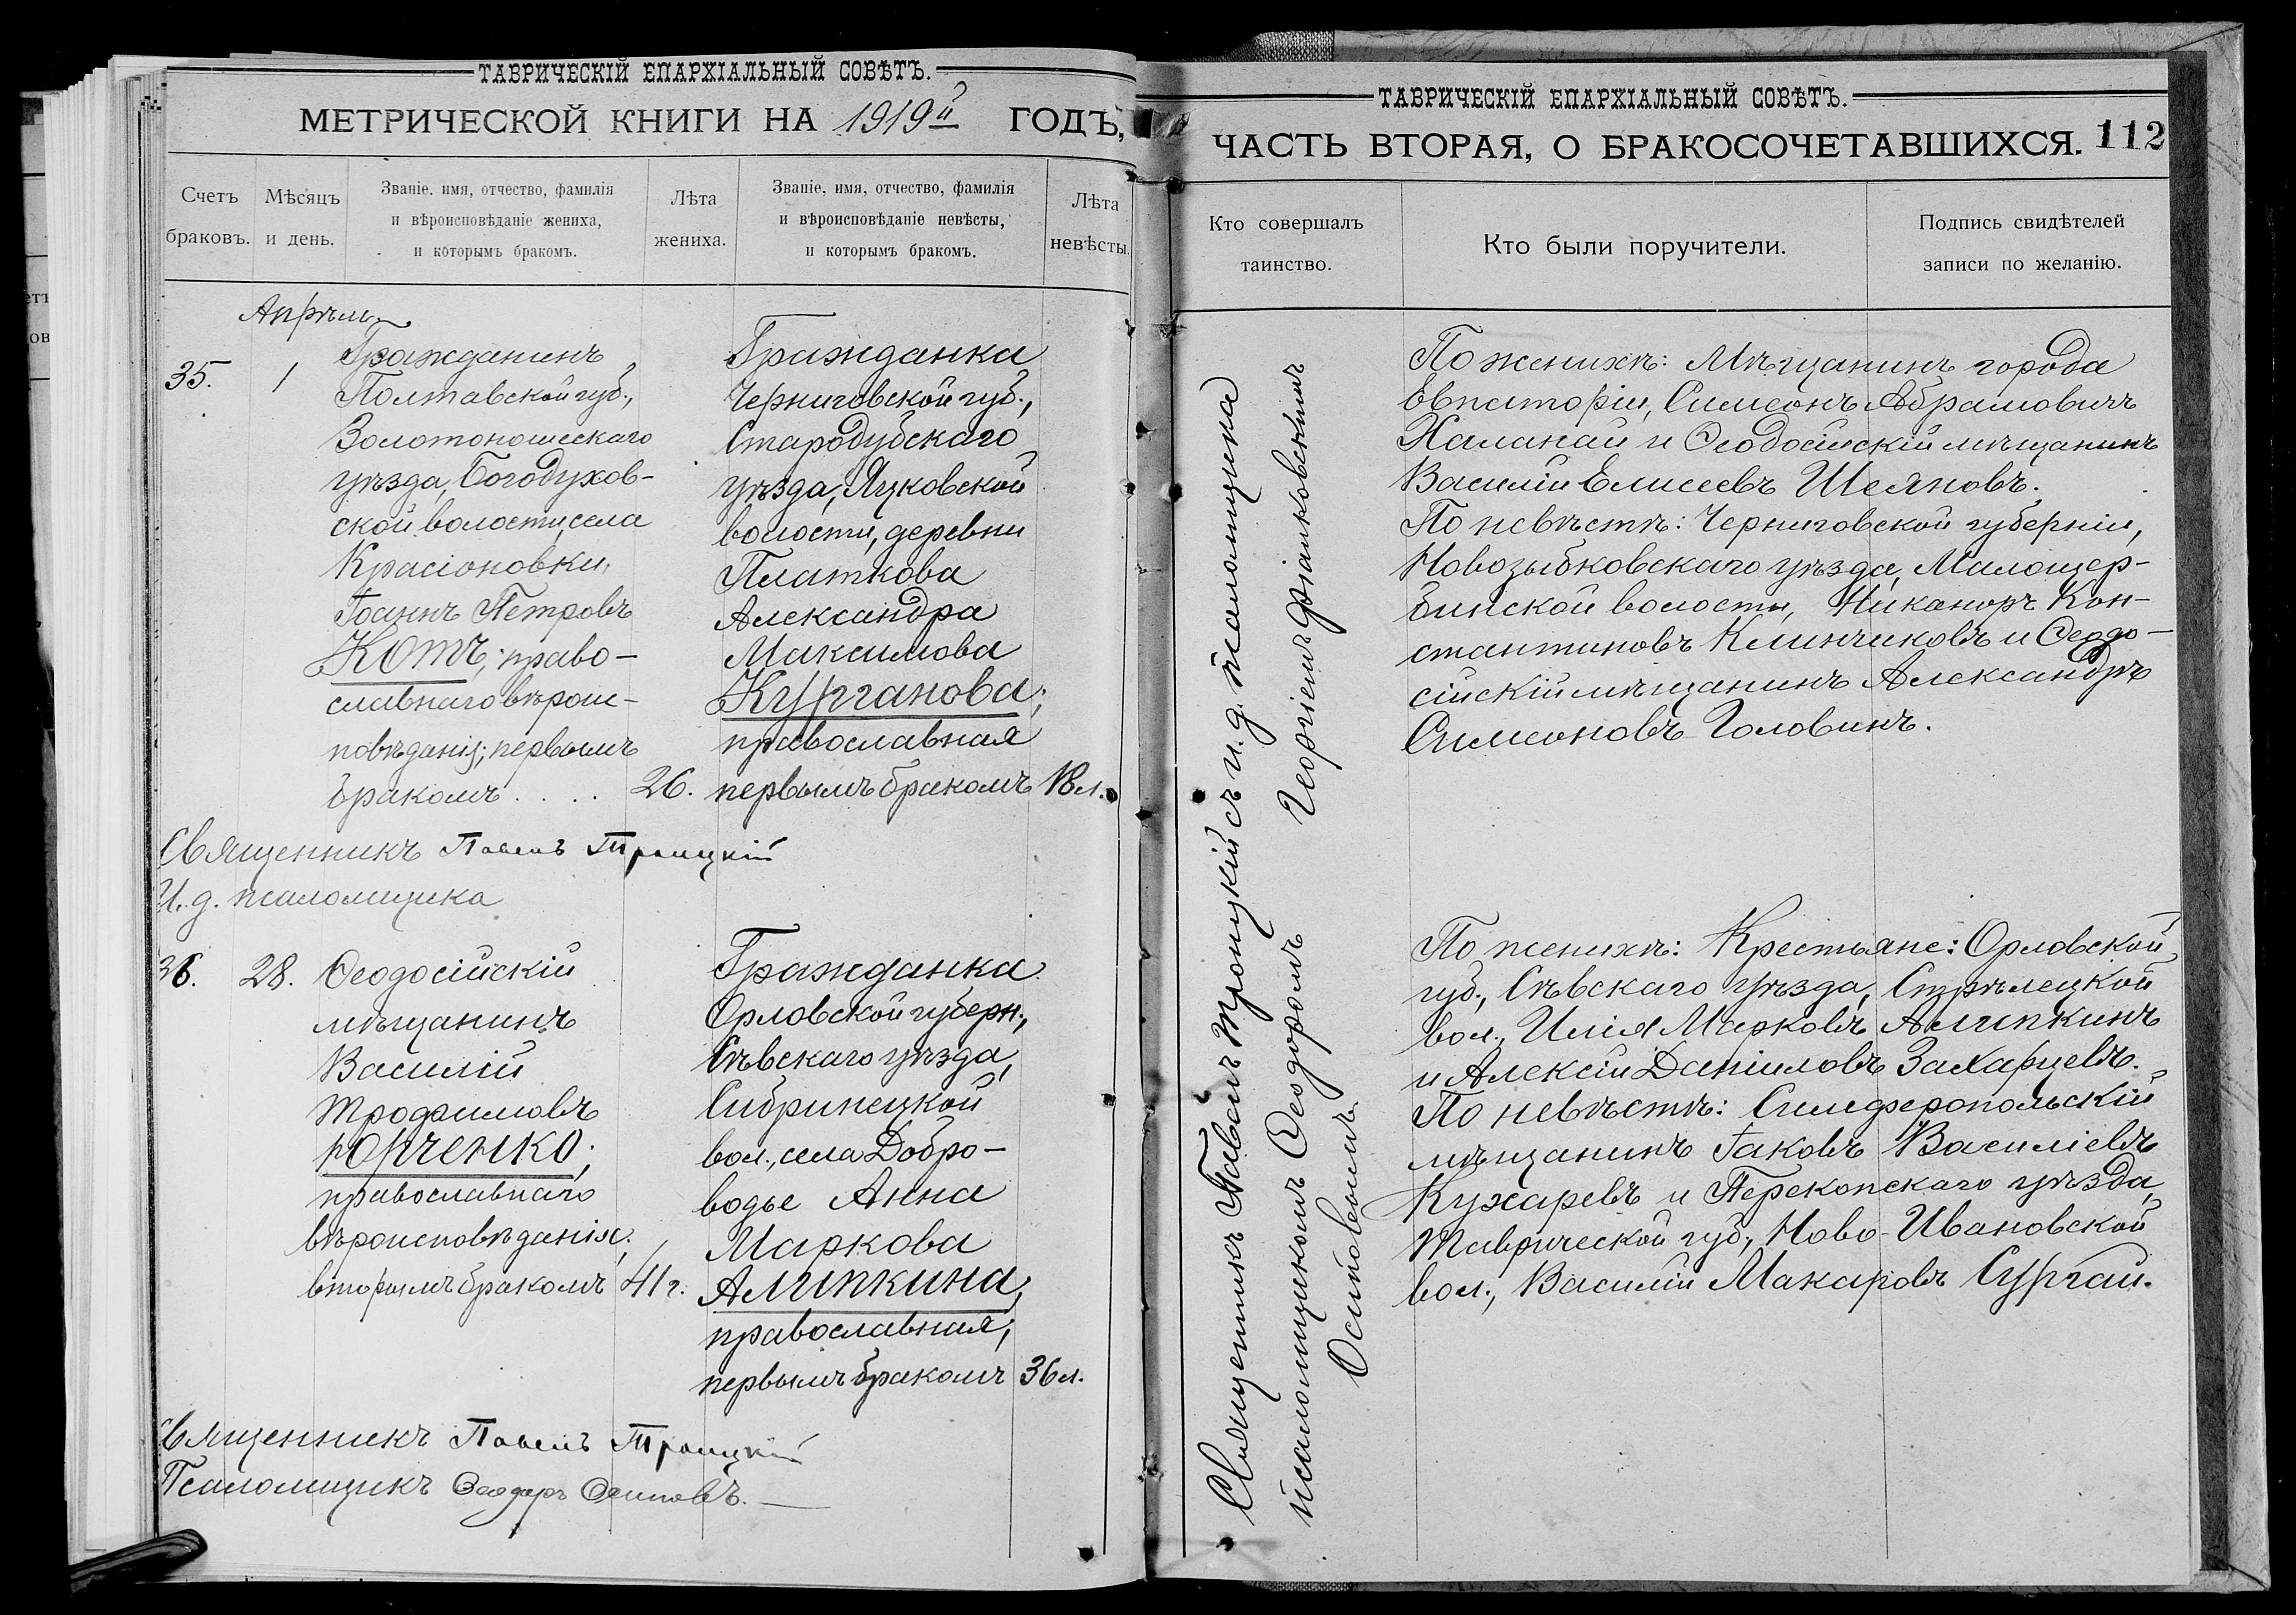 ТАВРИЧЕСКІЙ ЕПАРХІАЛЬНЫЙ СОВѢТЪ.
МЕТРИЧЕСКОЙ КНИГИ НА 1919й ГОДЪ,
Счетъ браковъ.
Мѣсяцъ и день.
Званіе, имя, отчество, фамилія
и вѣроисповѣданіе жениха,
и которымъ бракомъ.
Лѣта жениха.
Званіе, имя, отчество, фамилія
и вѣроисповѣданіе невѣсты,
и которымъ бракомъ.
Лѣта невѣсты.
Апрѣль
35.
1
Гражданинъ
Полтавской губ.,
Золотоношескаго
уѣзда, Богодухов-
ской волости, села
Красіоновки,
Іоаннъ Петровъ
Котъ; право-
славнаго вѣроис-
повѣданія; первымъ
бракомъ . . . .
26.
Гражданка
Черниговской губ.,
Стародубскаго
уѣзда, Яцковской
волости, деревни
Платкова
Александра
Максимова
Курганова;
православная
первымъ бракомъ
18 л.
Священникъ Павелъ Троицкій
И. д. псаломщика
36.
28.
Ѳеодосійскій
мѣщанинъ
Василій
Трофимовъ
Юрченко;
православнаго
вѣроисповѣданія;
вторымъ бракомъ
41 г.
Гражданка
Орловской губерн.,
Сѣвскаго уѣзда,
вол., села Добро-
водье Анна
Маркова
Алипкина,
православная;
первымъ бракомъ
36 л.
Священникъ Павелъ Троицкій
Псаломщикъ Ѳеодоръ Осиповъ.
ТАВРИЧЕСКІЙ ЕПАРХІАЛЬНЫЙ СОВѢТЪ.
ЧАСТЬ ВТОРАЯ, О БРАКОСОЧЕТАВШИХСЯ.
112
Кто совершалъ
таинство.
Кто были поручители.
Подпись свидѣтелей
записи по желанію.
Священникъ Павелъ Троицкій съ и. д. псаломщика
псаломщикомъ Ѳеодоромъ Георгіемъ
Осиповымъ.
По женихѣ: Мѣщанинъ города
Евпаторіи, Симеонъ Абрамовичъ
и Ѳеодосійскій мѣщанинъ
Василій Елисеевъ Шеяновъ.
По невѣстѣ: Черниговской губерніи,
Новозыбковскаго уѣзда, Малощер-
бинской волости, Никаноръ Кон-
стантиновъ Клинчиковъ и Ѳеодо-
сійскій мѣщанинъ Александръ
Симеоновъ Головинъ.
По женихѣ: Крестьяне: Орловской
губ., Сѣвскаго уѣзда, Стрѣлецкой
вол., Илія Марковъ Алипкинъ
и Алексій Даніиловъ Захарцевъ.
По невѣстѣ: Симферопольскій
мѣщанинъ Іаковъ Василіевъ
Кухаревъ и Перекопскаго уѣзда,
Таврической губ., Ново-Ивановской
вол., Василій Макаровъ Сургай.